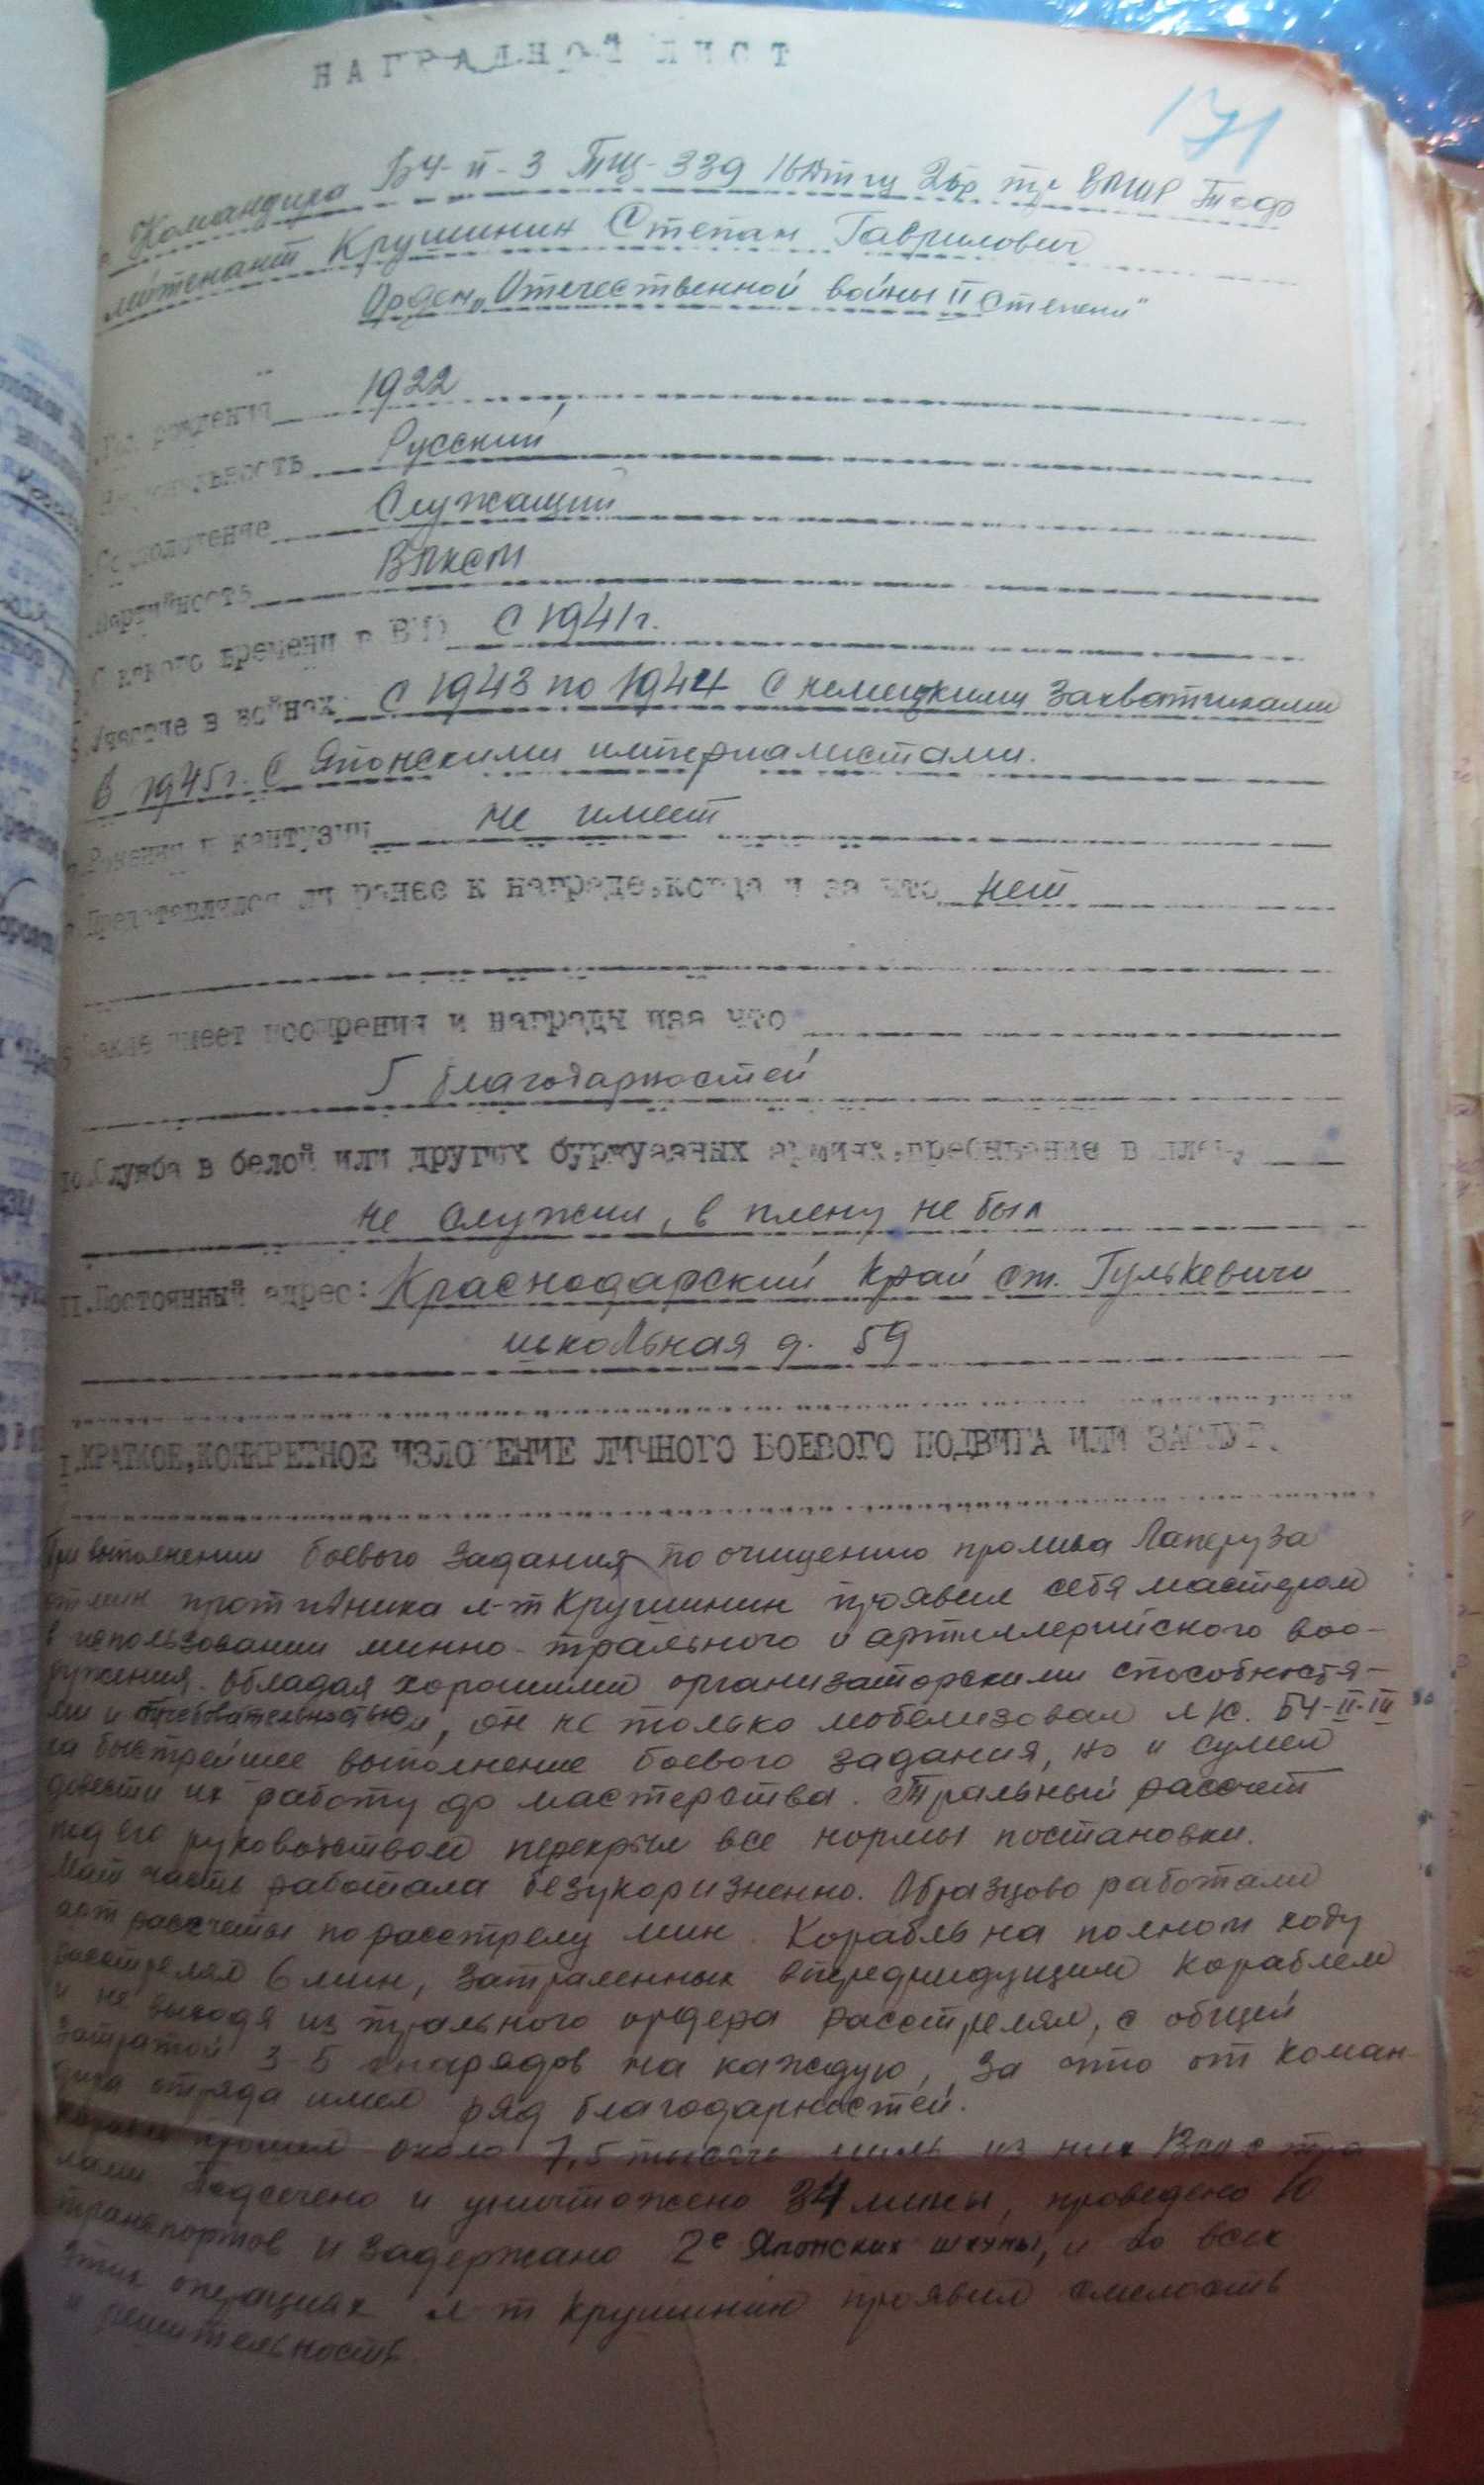 НАГРАДНОЙ ЛИСТ
171
Командира БЧ-II-3 ТЩ-339 2бр тр ВМШР Тоф
лейтенант Крушинин Степан Гаврилович
Орден „Отечественной войны II степени"
рождения 1922
Русский
Служащий
Партийность ВЛКСМ
С какого времени в С 1941г.
Участие в войнах С 1943 по 1944 С немецкими захватчиками
В 1945г. С Японскими империалистами.
Ранения и контузии не имеет
Представлялся ли ранее к награде, когда и за что нет
Какие имеет поощрения и награды иза что
5 благодарностей
10. Служба в белой или других буржуазных армиях, пребывание в плену
не служил, в плену не был
11. Постоянный адрес: Краснодарский край ст. Гулькевичи
школьная д. 59
I. КРАТКОЕ, КОНКРЕТНОЕ ИЗЛОЖЕНИЕ ЛИЧНОГО БОЕВОГО ПОДВИГА ИЛИ ЗАСЛУГ.
При выполнении боевого задания по очищению пролива Лаперуза
от мин противника л-т Крушинин проявил себя мастером
в использовании минно-трального и артиллерийского воо-
ружения. Обладая хорошими организаторскими способностя-
ми и требовательностью, он не только мобелизовал л/с. БЧ-II-III
на быстрейшее выполнение боевого задания, но и сумел
довести их работу до мастерства. Тральный рассчет
под его руководством перекрыл все нормы постановки.
Мат часть работала безукоризненно. Образцово работали
арт рассчеты по расстрелу мин. Корабль на полном ходу
расстрелял 6 мин, затраленных впередиидущим кораблем
и не выходя из трального ордера расстрелял, с общей
затратой 3-5 снарядов на каждую, за что от коман-
дира отряда имел ряд благодарностей.
Корабль прошел около 7,5 тысяч миль из них с тра
лами Подсечено и уничтожено 34 мины, проведено 10
транспортов и задержано 2е Японских шхуны, и во всех
этих операциях л-т Крушинин проявил смелость
и решительность.